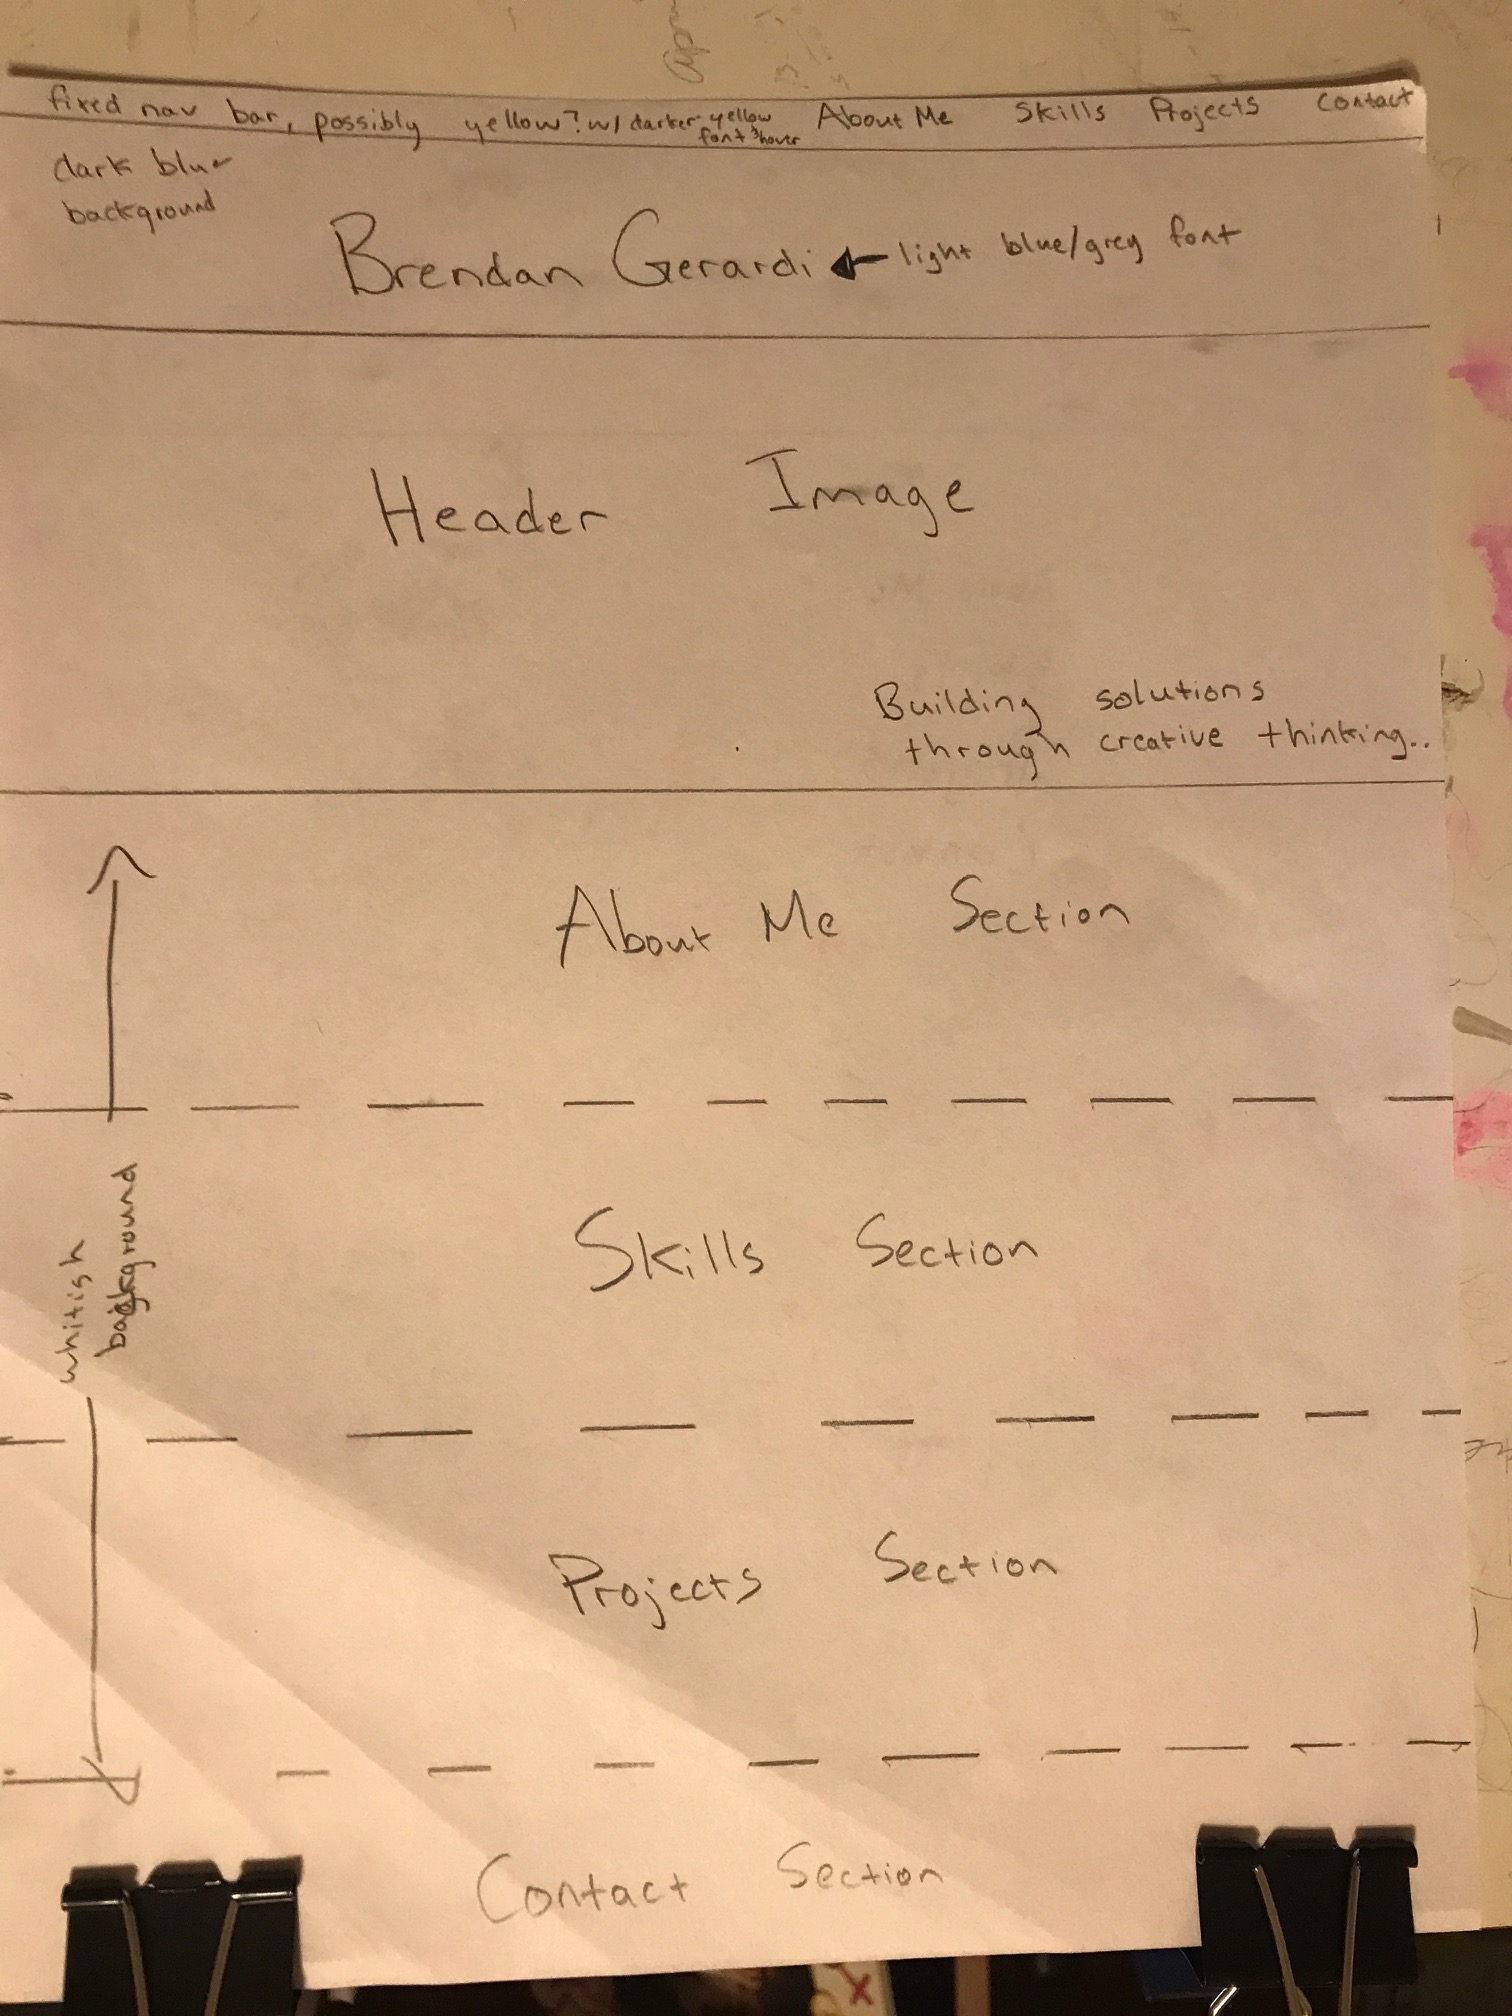 fixed nav bar, possibly yellow? w/ darker yellow
font & hover
About Me Skills Projects Contact
dark blue
background
Brendan Gerardi
light blue/grey font
Header Image
Building solutions
through creative thinking..
About Me Section
whitish
background
Skills Section
Projects Section
Contact Section